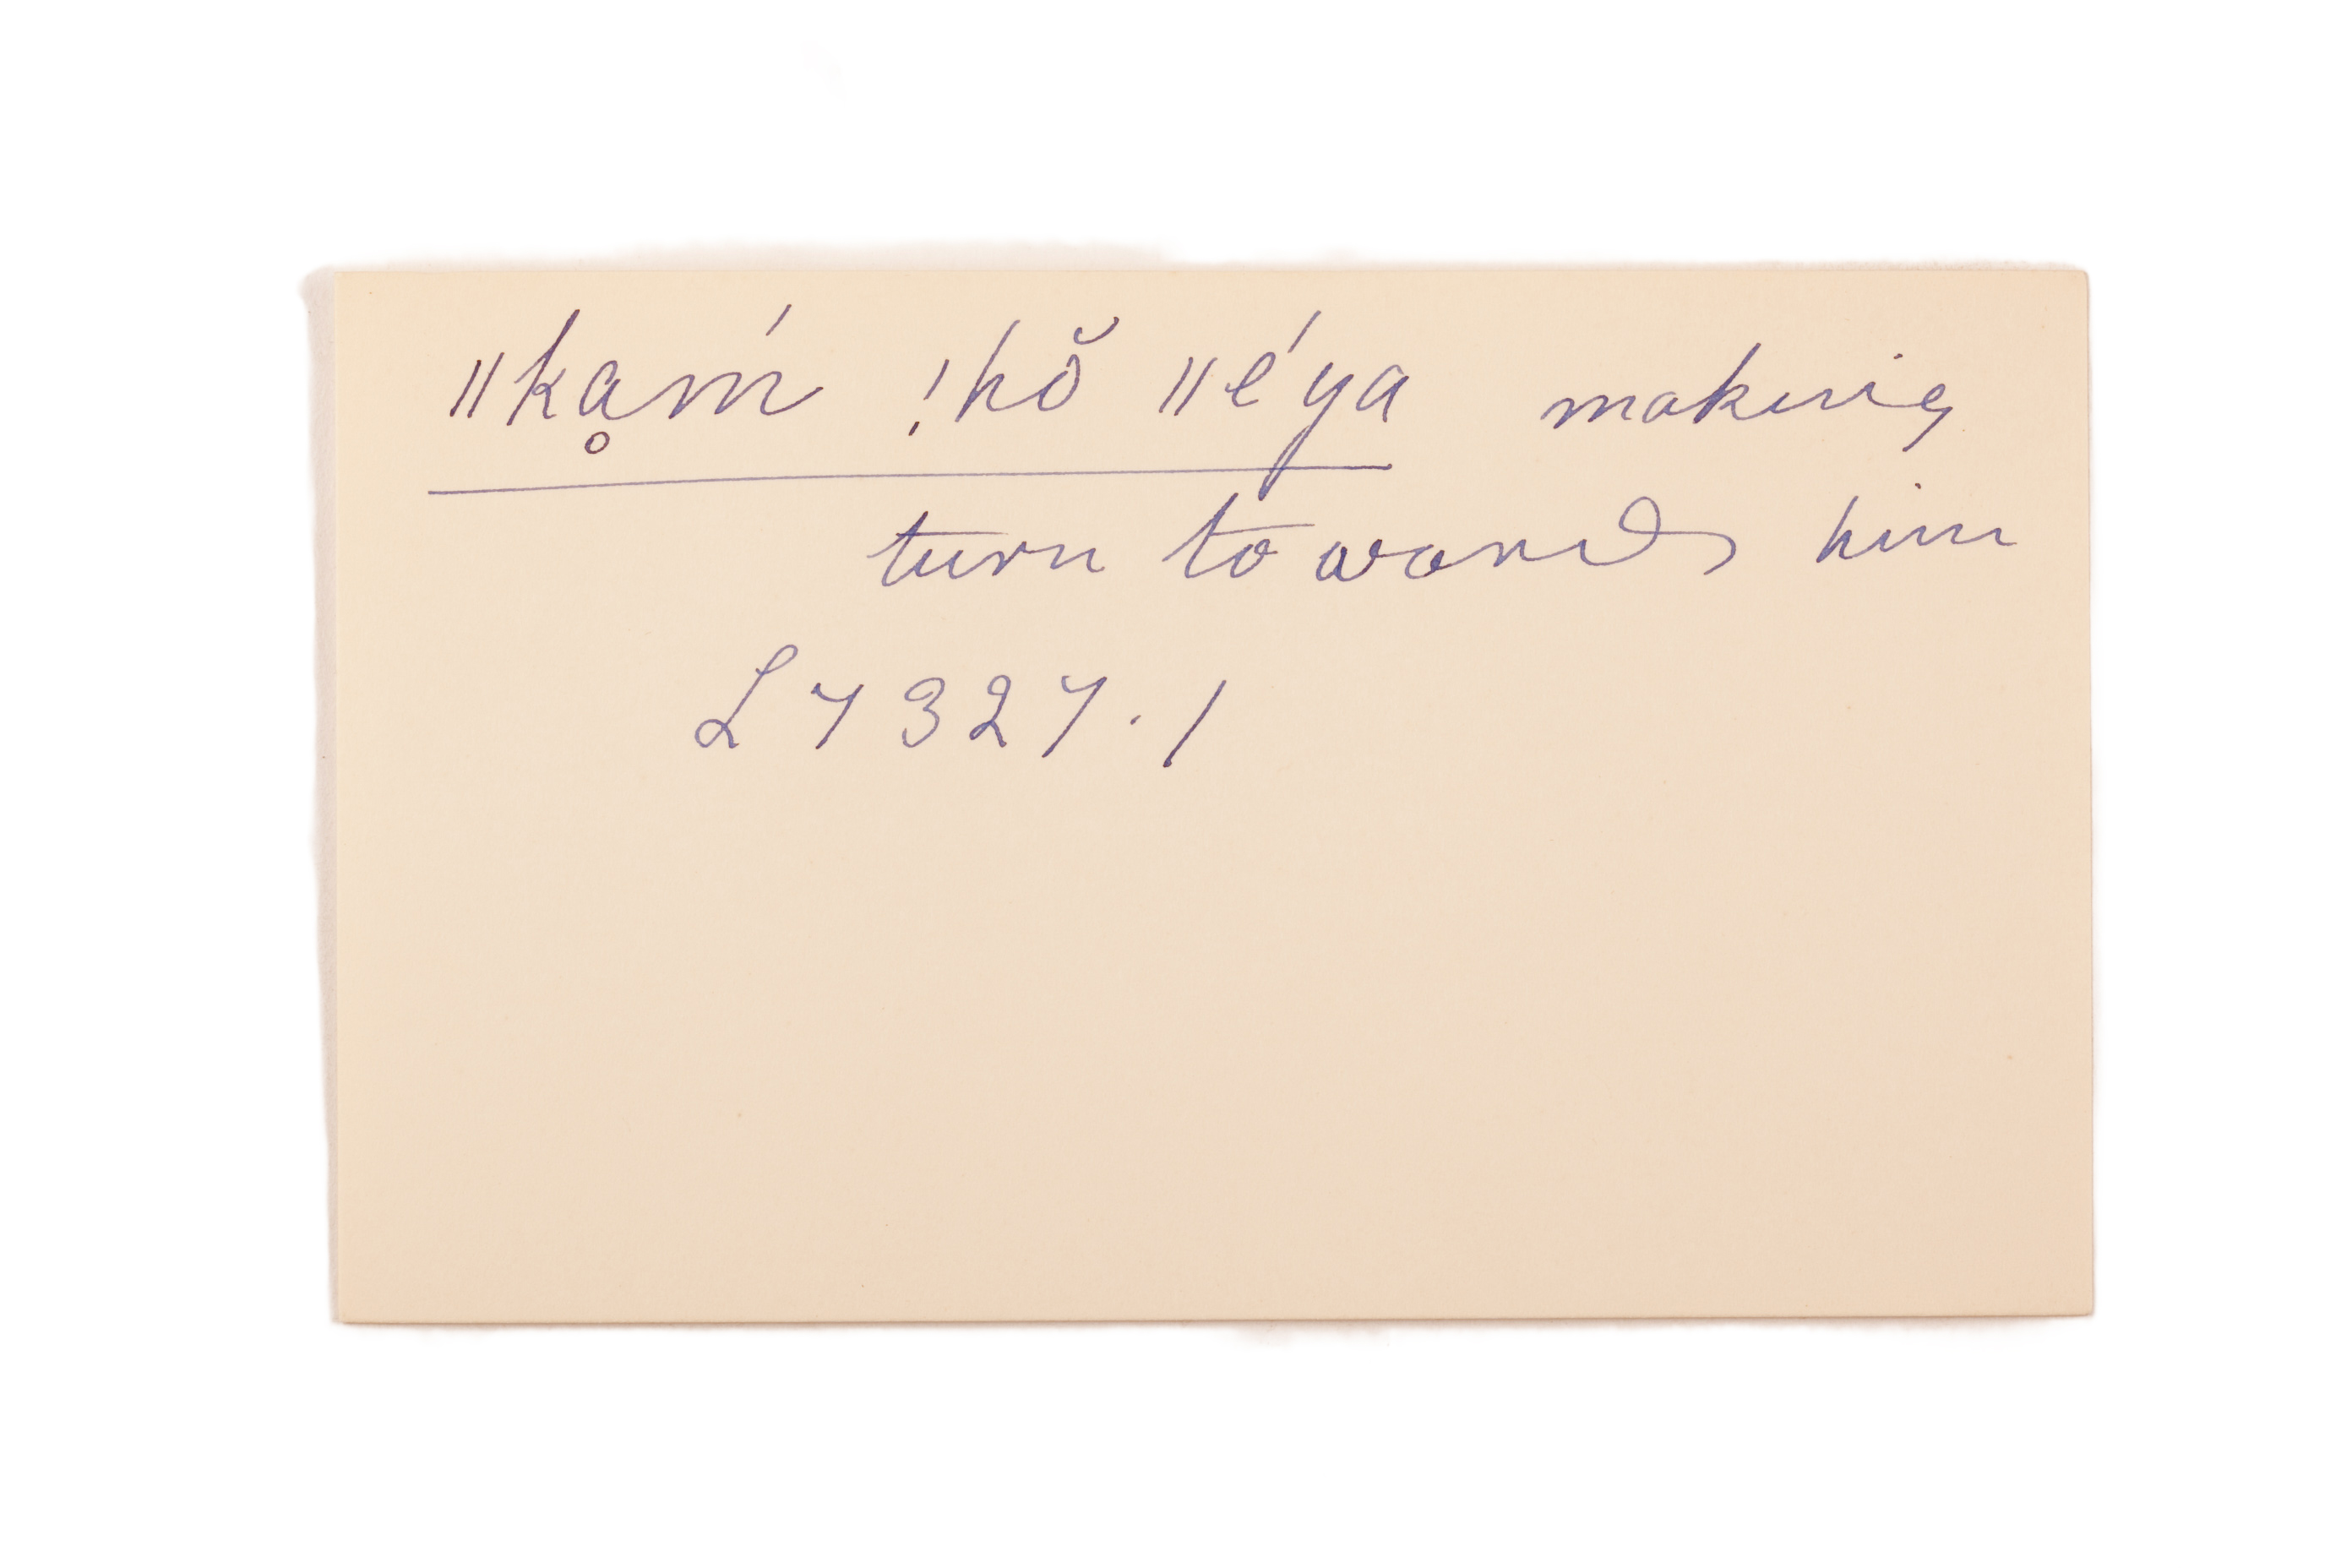 ǁkḁḿ ǃhŏ ǁé'ya making
turn towards him
L7327.1